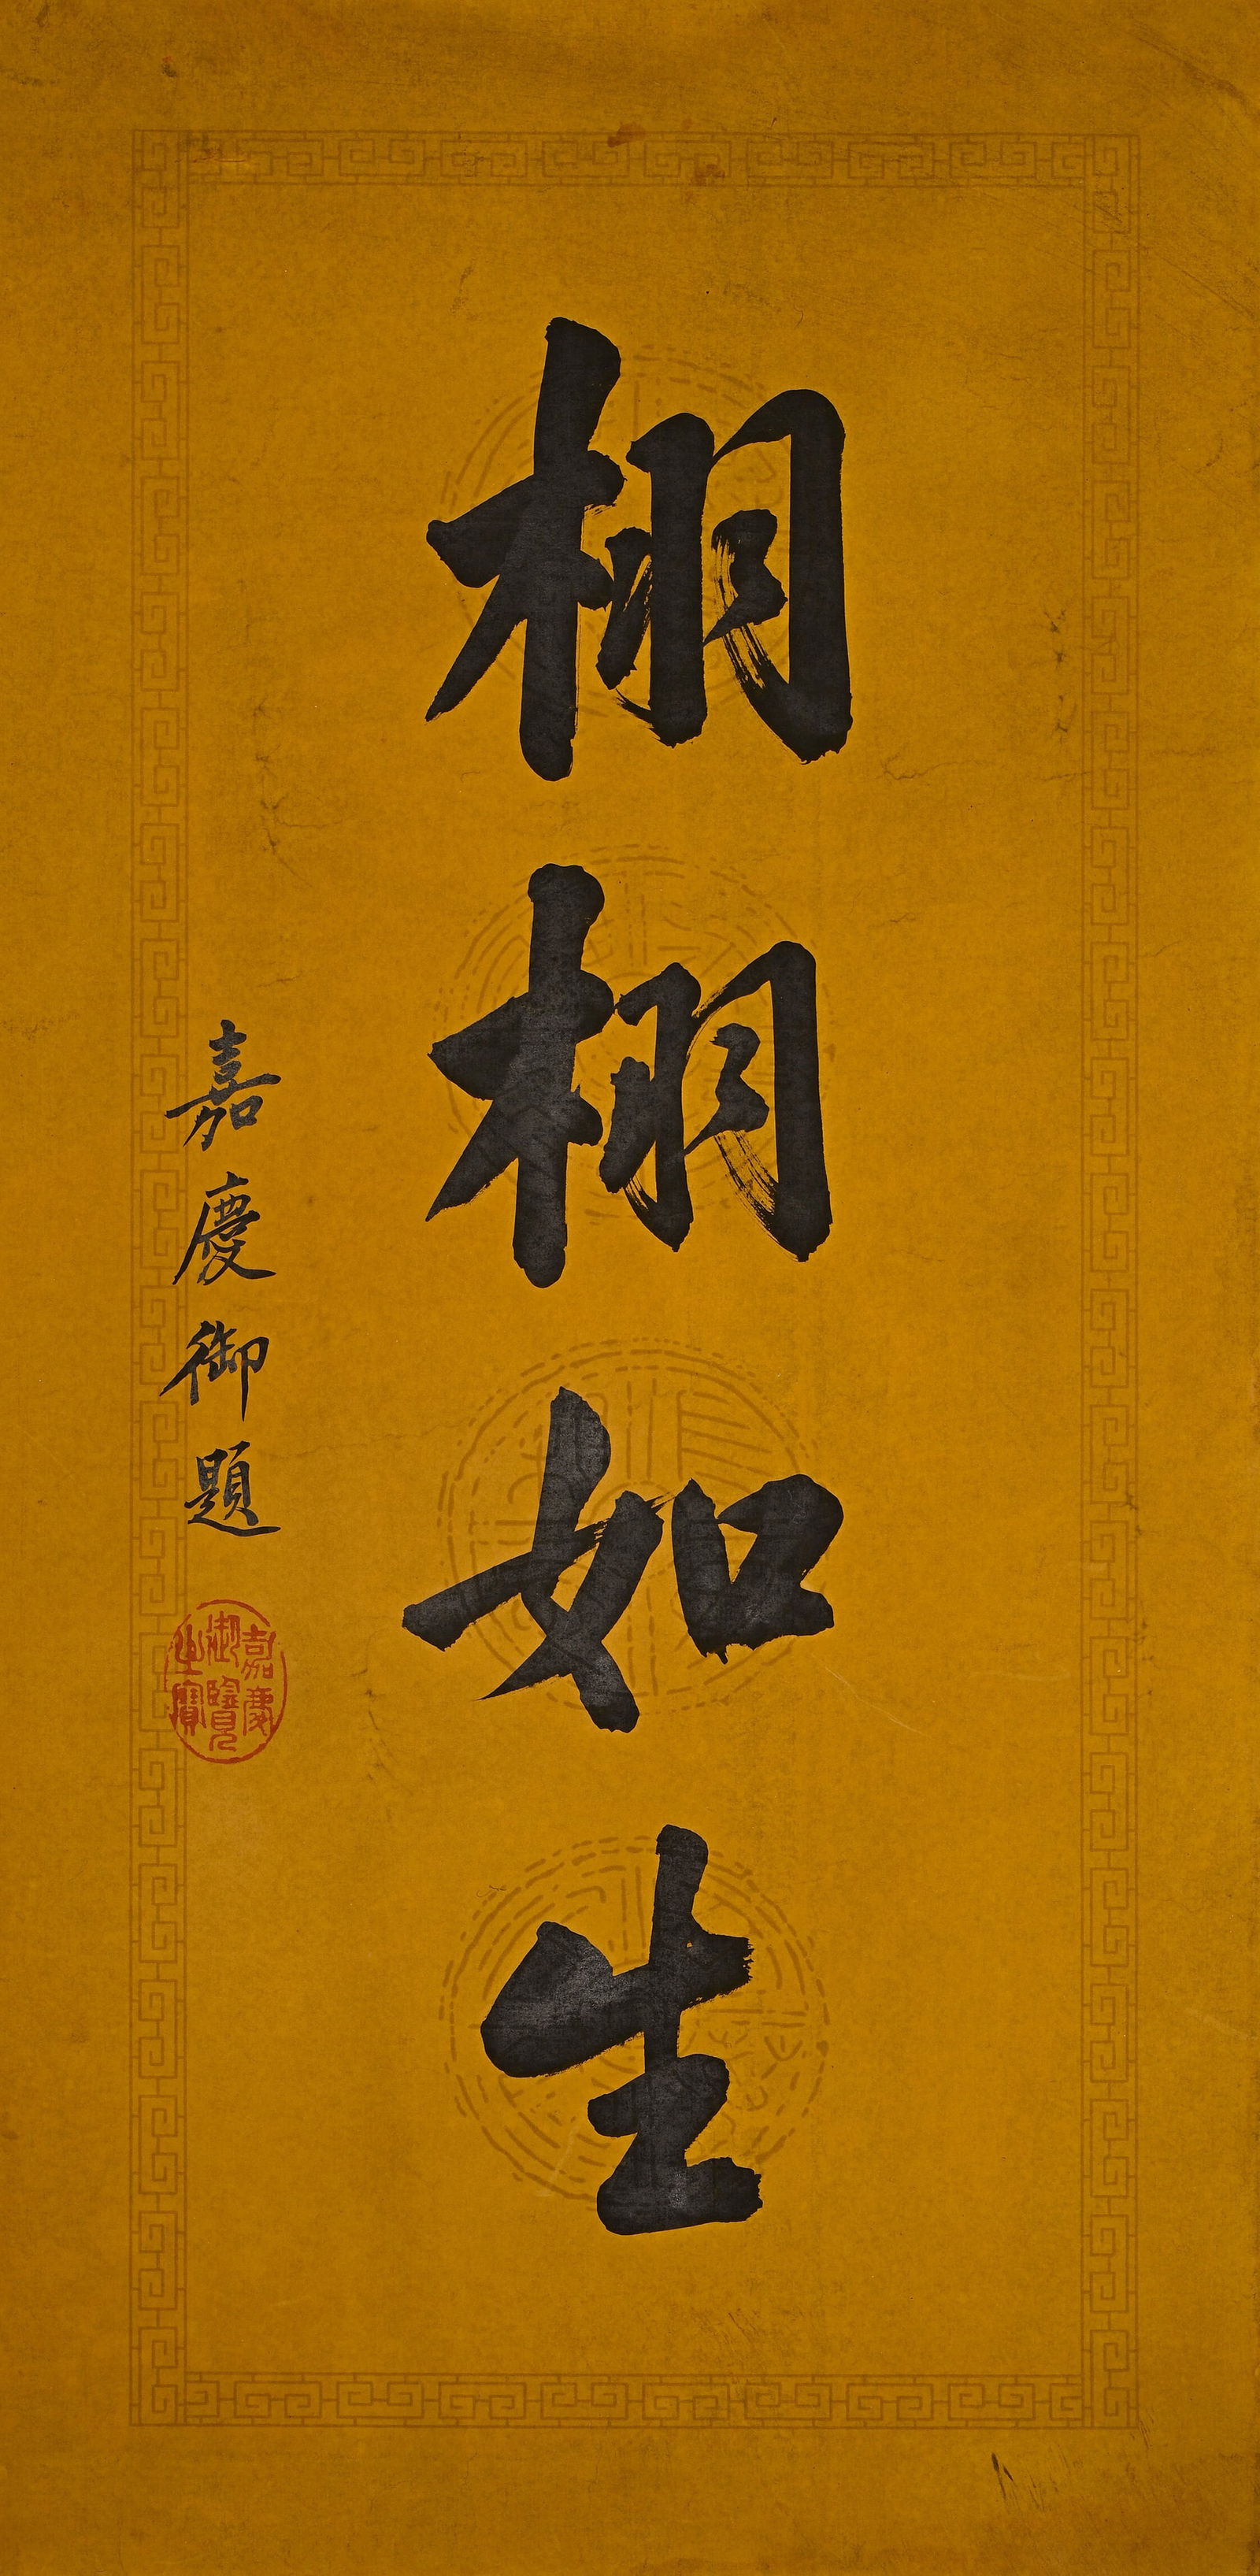 栩栩如生
嘉慶御題
嘉慶
御覽
之寶